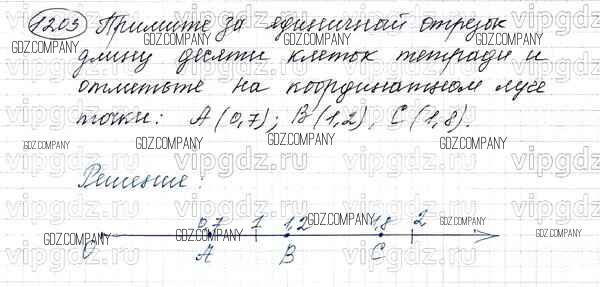 1203 Примите за единичный отрезок
длину десяти клеток тетради и
отметьте на координатном луче
точки: A(0,7); B(1,2), C(1,8).
Решение:
0,7 1 1,2 1,8 2
0 A B C
GDZ.COMPANY
vipgdz.ru